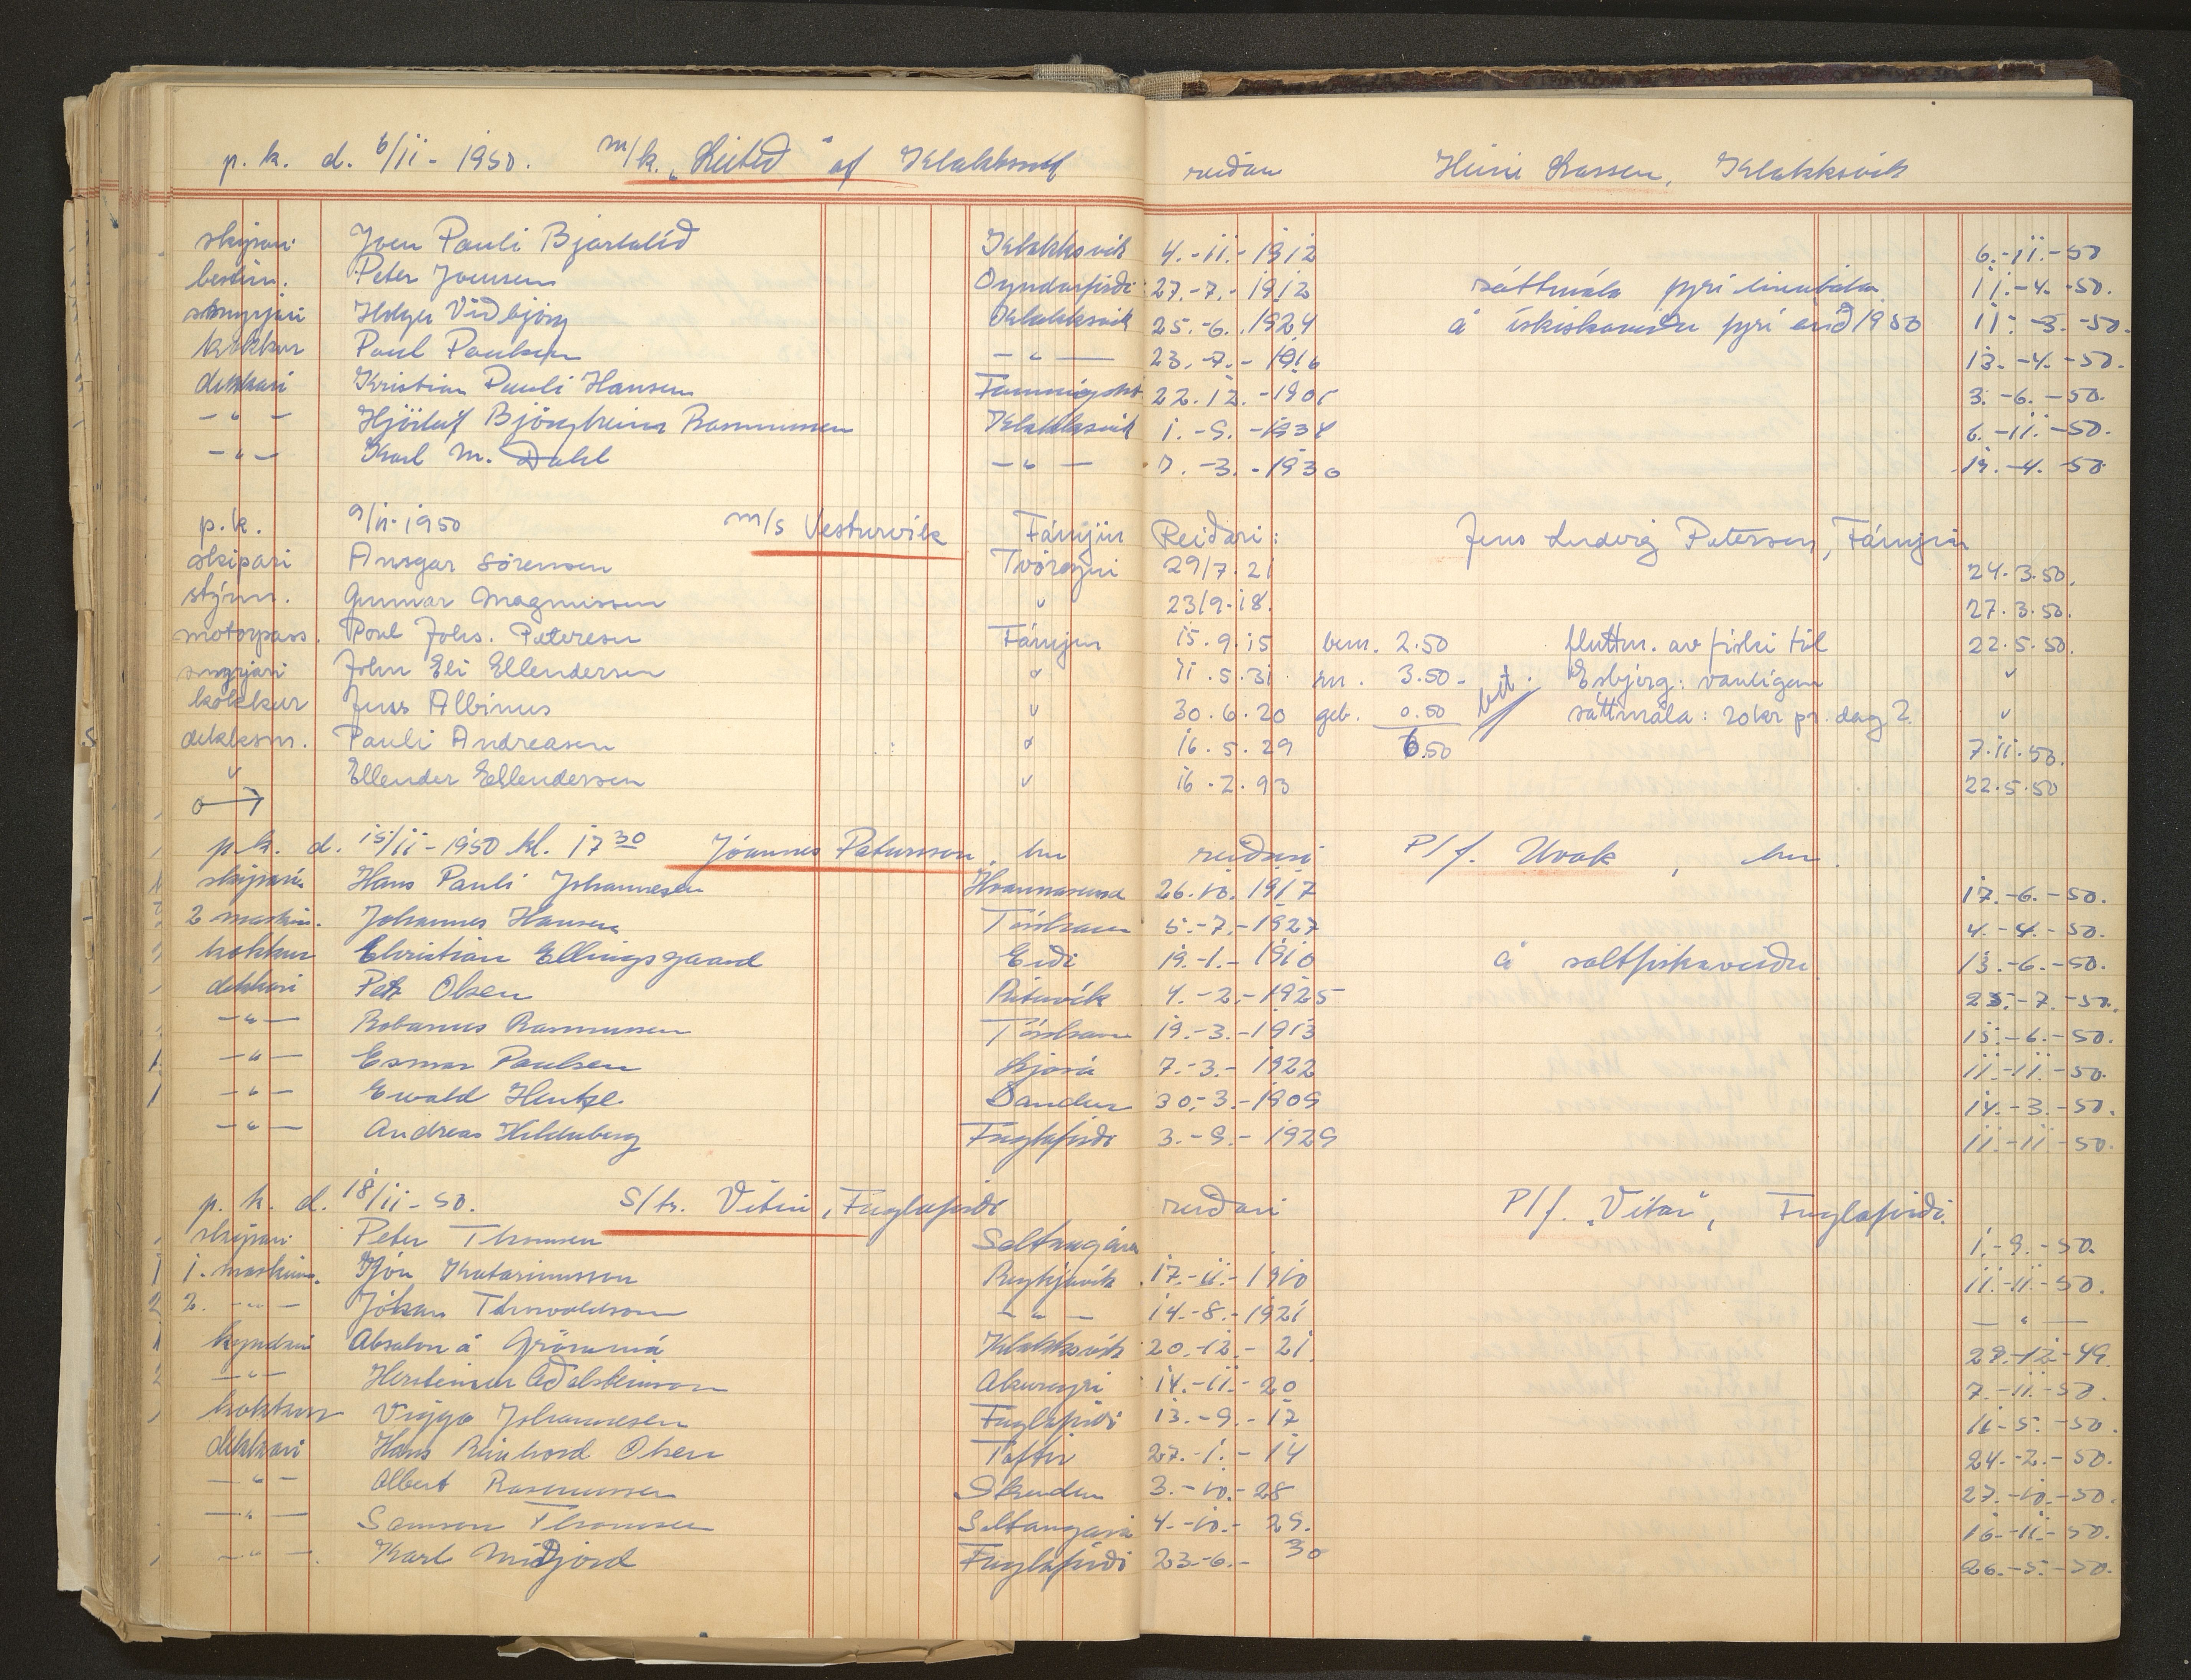 p. k. d. 6/11-1950. m/k. „Leitið“ af Klakksvík reiðari Heini Lassen, Klakksvík
skipari Joen Pauli Bjartalíð Klakksvík 4.-11.-1912 6.-11.-50
bestim. Peter Joensen Oyndarfirði 27.-7.-1912 sáttmála fyri línubáta 11.-4.-50.
smyrjari Holger Viðbjørg Klakksvik 25.-6.1924 á ískiskaveiðu fyri árið 1950 11.-3.-50.
kokkur Poul Poulsen -"- 23.-7.-1916 13.-4.-50.
dekkari Kristian Pauli Hansen Funningsbt 22.12.-1905 3.-6.-50.
-"- Hjörleif Björgheim Rasmussen Klakksvik 1.-9.-1934 6.-11.-50.
-"- Karl M. Dahl -"- 7.-3.-1930 19.-4.-50
p.k. 9/11-1950 m/s Vesturvík Fámjin Reiðari: Jens Ludvig Petersen, Fámjin
skipari Ansgar Sörensen Tvöroyri 29/7.21 24.3.50.
stýrm. Gunnar Magnussen " 23/9-18. 27.3.50.
motorpass. Poul Johs. Petersen Fámjin 15.9.15 bem. 2.50 fluttn. av fiski til 22.5.50.
smyrjari John Eli Ellendersen " 11.5.31 sn. 3.50- Esbjerg: vanligan "
kokkur Juss Albinus " 30.6.20 geb. 0.50 sáttmála: 20 kr pr. dag? "
dekksm. Pauli Andreasen " 16.5.29 6.50 7.11.50.
" Ellender Ellendersen " 16.2.93 22.5.50
p.k. d. 15/11-1950 kl. 17 30 Jóannes Patursson, hn reiðari P/f. Uvak, hn.
skipari Hans Pauli Johannesen Hvannasund 26.10.1917 17.-6.-50.
2 maskin. Johannes Hansen Tórshavn 5.-7.-1927 4.-4.-50.
kokkur Christian Ellingsgaard Eiði 19.-1.-1910 á saltfiskaveiðu 13.-6.-50.
dekkari Petr Olsen Rituvík 4.-2.-1925 25.-7.-50.
-"- Robanus Rasmussen Tórshavn 19.-3.-1913 15.-6.-50.
-"- Esmar Paulsen Ljósá 7.-3.-1922 11.-11.-50.
-"- Ewald Hentze Sandur 30.-3.-1909 14.-3.-50.
-"- Andreas Hildaberg Fuglafirði 3.-9.-1929 11.-11-50.
p. k. d. 18/11-50. S/tr. Vitin, Fuglafirði reiðari P/f. „Vitar“, Fuglafirði.
skipari Peter Thomsen Saltangará 1.-9.-50.
1. maskinm. Jón Katarinusson Reykjavík 17.-11.-1910 11.-11.-50.
2. -"- Jóhan Thorvaldson -"- 14.-8.-1921 -"-
kyndari Absalon á Grömmá Klakksvik 20.-12.-21 29.-12-49.
-"- Hersteinur Aðalsteinson Akureyri 14.-11.-20 7.-11.-50.
kokkur Viggo Johannesen Fuglafirði 13.-9.-17 11-5.-50.
dekkari Hans Reinhard Olsen Toftir 27.-1.-14 24.-2.-50.
-"- Albert Rasmussen Strendur 3.-10.-28 27.-10.-50.
-"- Samson Thomsen Saltangará 4.-10.-29. 16-11-50.
-"- Karl Miðjord Fuglafirði 23.-6.-30 26.-5.-50.